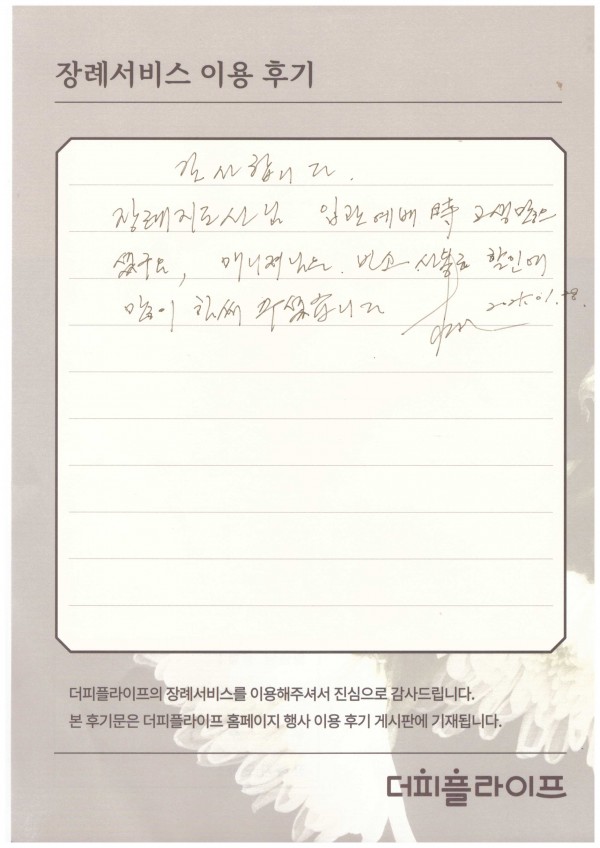 장례서비스 이용 후기
감사합니다.
장례지도사님 입관예배 時 고생많으
셨구요, 매니져님은 빈소 사용료 할인에
많이 힘써 주셨습니다
2025.01.28.
더피플라이프의 장례서비스를 이용해주셔서 진심으로 감사드립니다.
본 후기문은 더피플라이프 홈페이지 행사 이용 후기 게시판에 기재됩니다.
더피플라이프